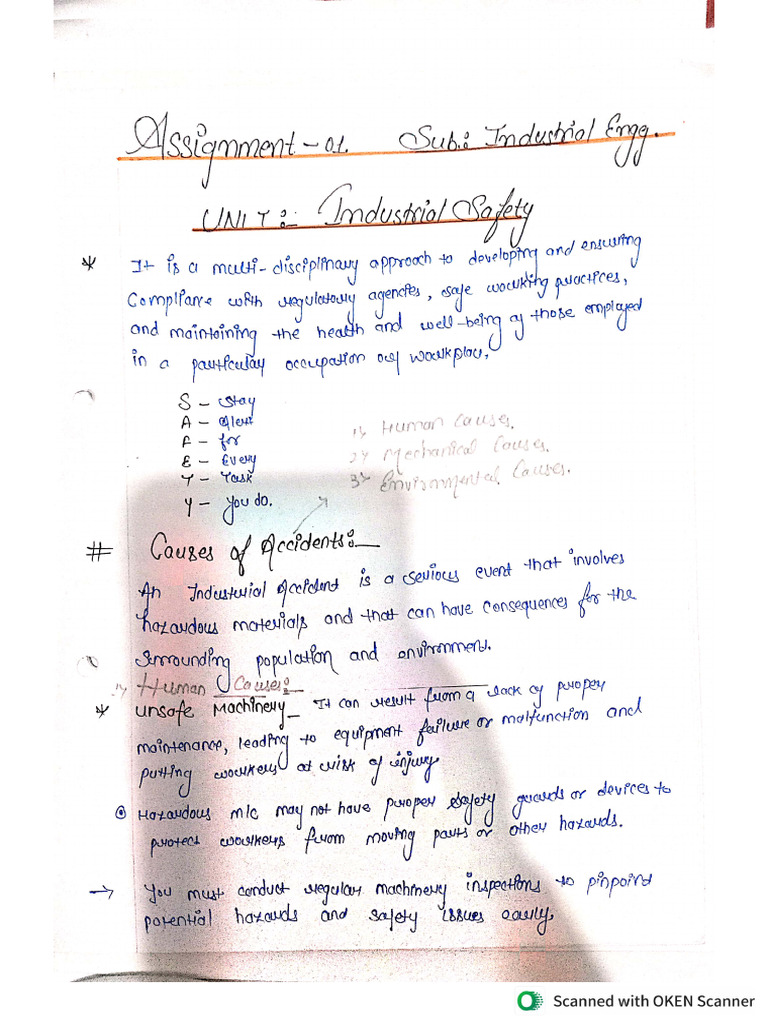 Assignment-01. Sub.: Industrial Engg.
UNIT:- Industrial Safety
* It is a multi-disciplinary approach to developing and ensuring
Compliance with regulatory agencies, safe working practices,
and maintaining the health and well-being of those employed
in a particular occupation or workplace,
S - Stay
A - Alert
F - for
E - Every
T - Task
Y - You do.
1) Human Causes.
2) Mechanical Causes.
3) Environmental Causes.
# Causes of Accidents:-
An Industrial Accident is a serious event that involves
hazardous materials and that can have consequences for the
surrounding population and environment.
1) Human Causes:-
* Unsafe Machinery - It can result from a lack of proper
maintenance, leading to equipment failure or malfunction and
putting workers at risk of injury
Hazardous m/c may not have proper safety guards or devices to
protect workers from moving parts or other hazards.
→ You must conduct regular machinery inspections to pinpoint
potential hazards and safety issues early.
Scanned with OKEN Scanner